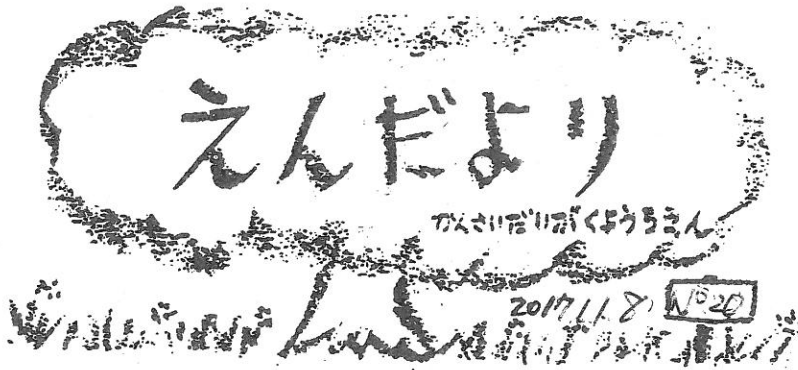 えんだより
かんさいだいがくようちえん
2017.11.8) Nº20